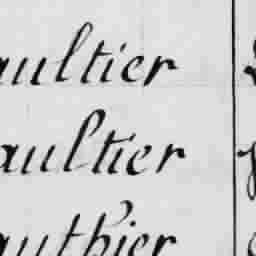 aultier
aultier
authier